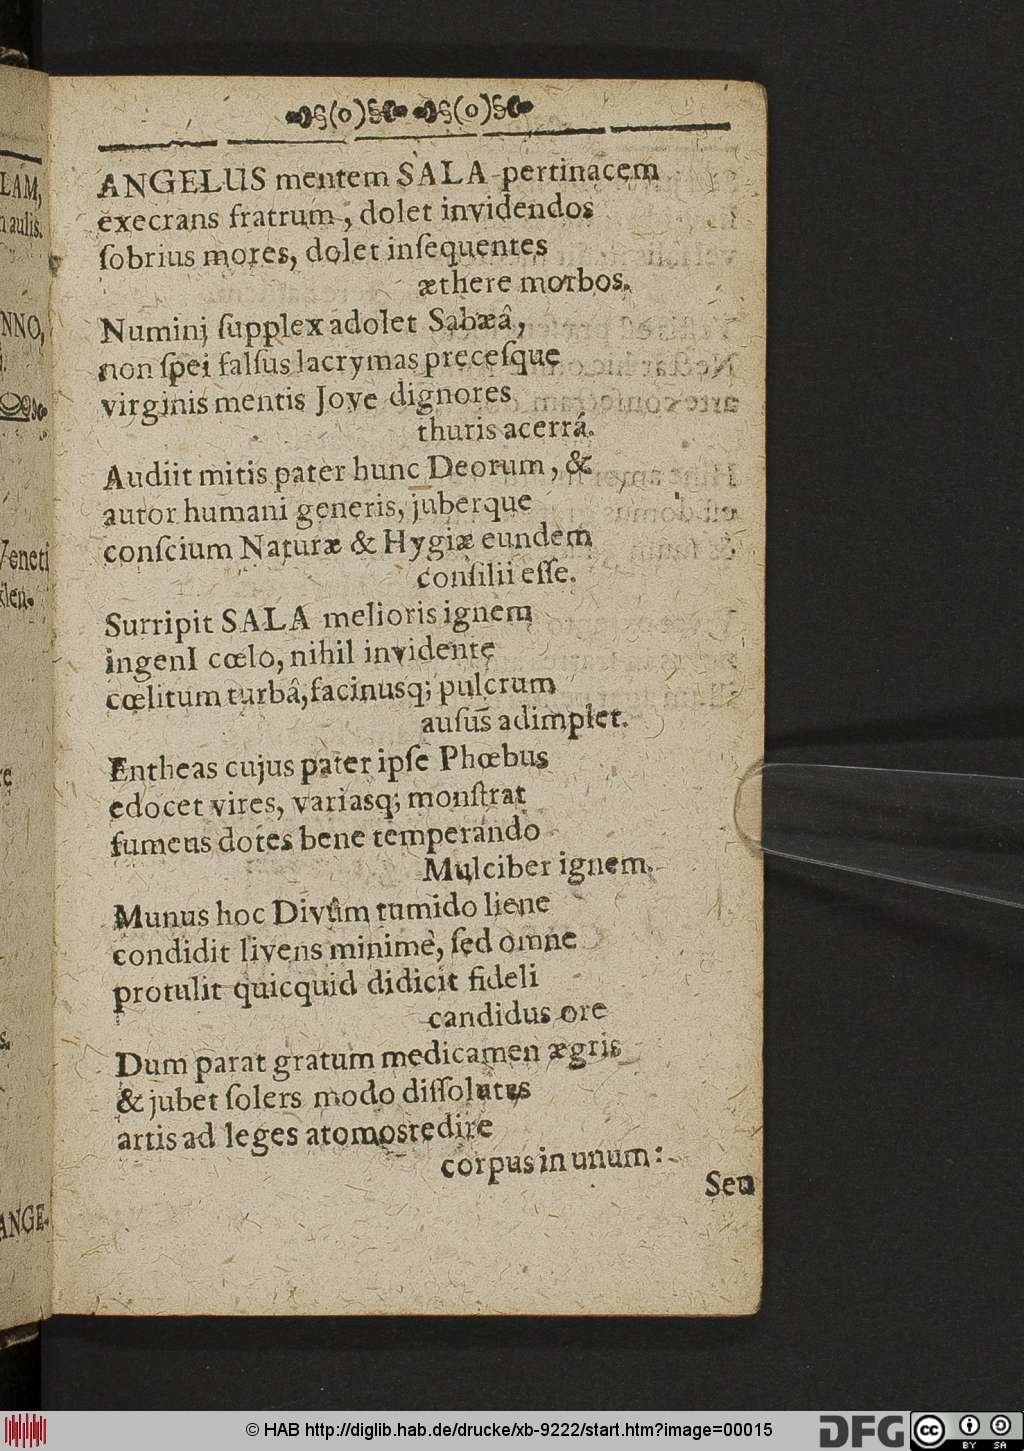 LAM,
n aulis.
NNO,
Veneti
ANGE-
(o) (o)
ANGELUS mentem SALA pertinacem
execrans fratrum, dolet invidendos
ſobrius mores, dolet inſequentes
æthere morbos.
Numini ſupplex adolet Sabæâ,
non ſpei falſus lacrymas preceſque
virginis mentis Jove dignores
thuris acerrá.
Audiit mitis pater hunc Deorum, &
autor humani generis, juberque
conſcium Naturæ & Hygiæ eundem
conſilii eſſe.
Surripit SALA melioris ignem
ingenI cœlo, nihil invidente
cœlitum turbâ, facinusq; pulcrum
auſus adimplet.
Entheas cujus pater ipſe Phœbus
edocet vires, variasq; monſtrat
fumeus dotes bene temperando
Mulciber ignem.
Munus hoc Divûm tumido liene
condidit livens minimè, ſed omne
protulit quicquid didicit fideli
candidus ore
Dum parat gratum medicamen ægris
& jubet ſolers modo diſſolutus
artis ad leges atomos redire
corpus in unum:
Seu
© HAB http://diglib.hab.de/drucke/xb-9222/start.htm?image=00015
DFG
cc
BY SA